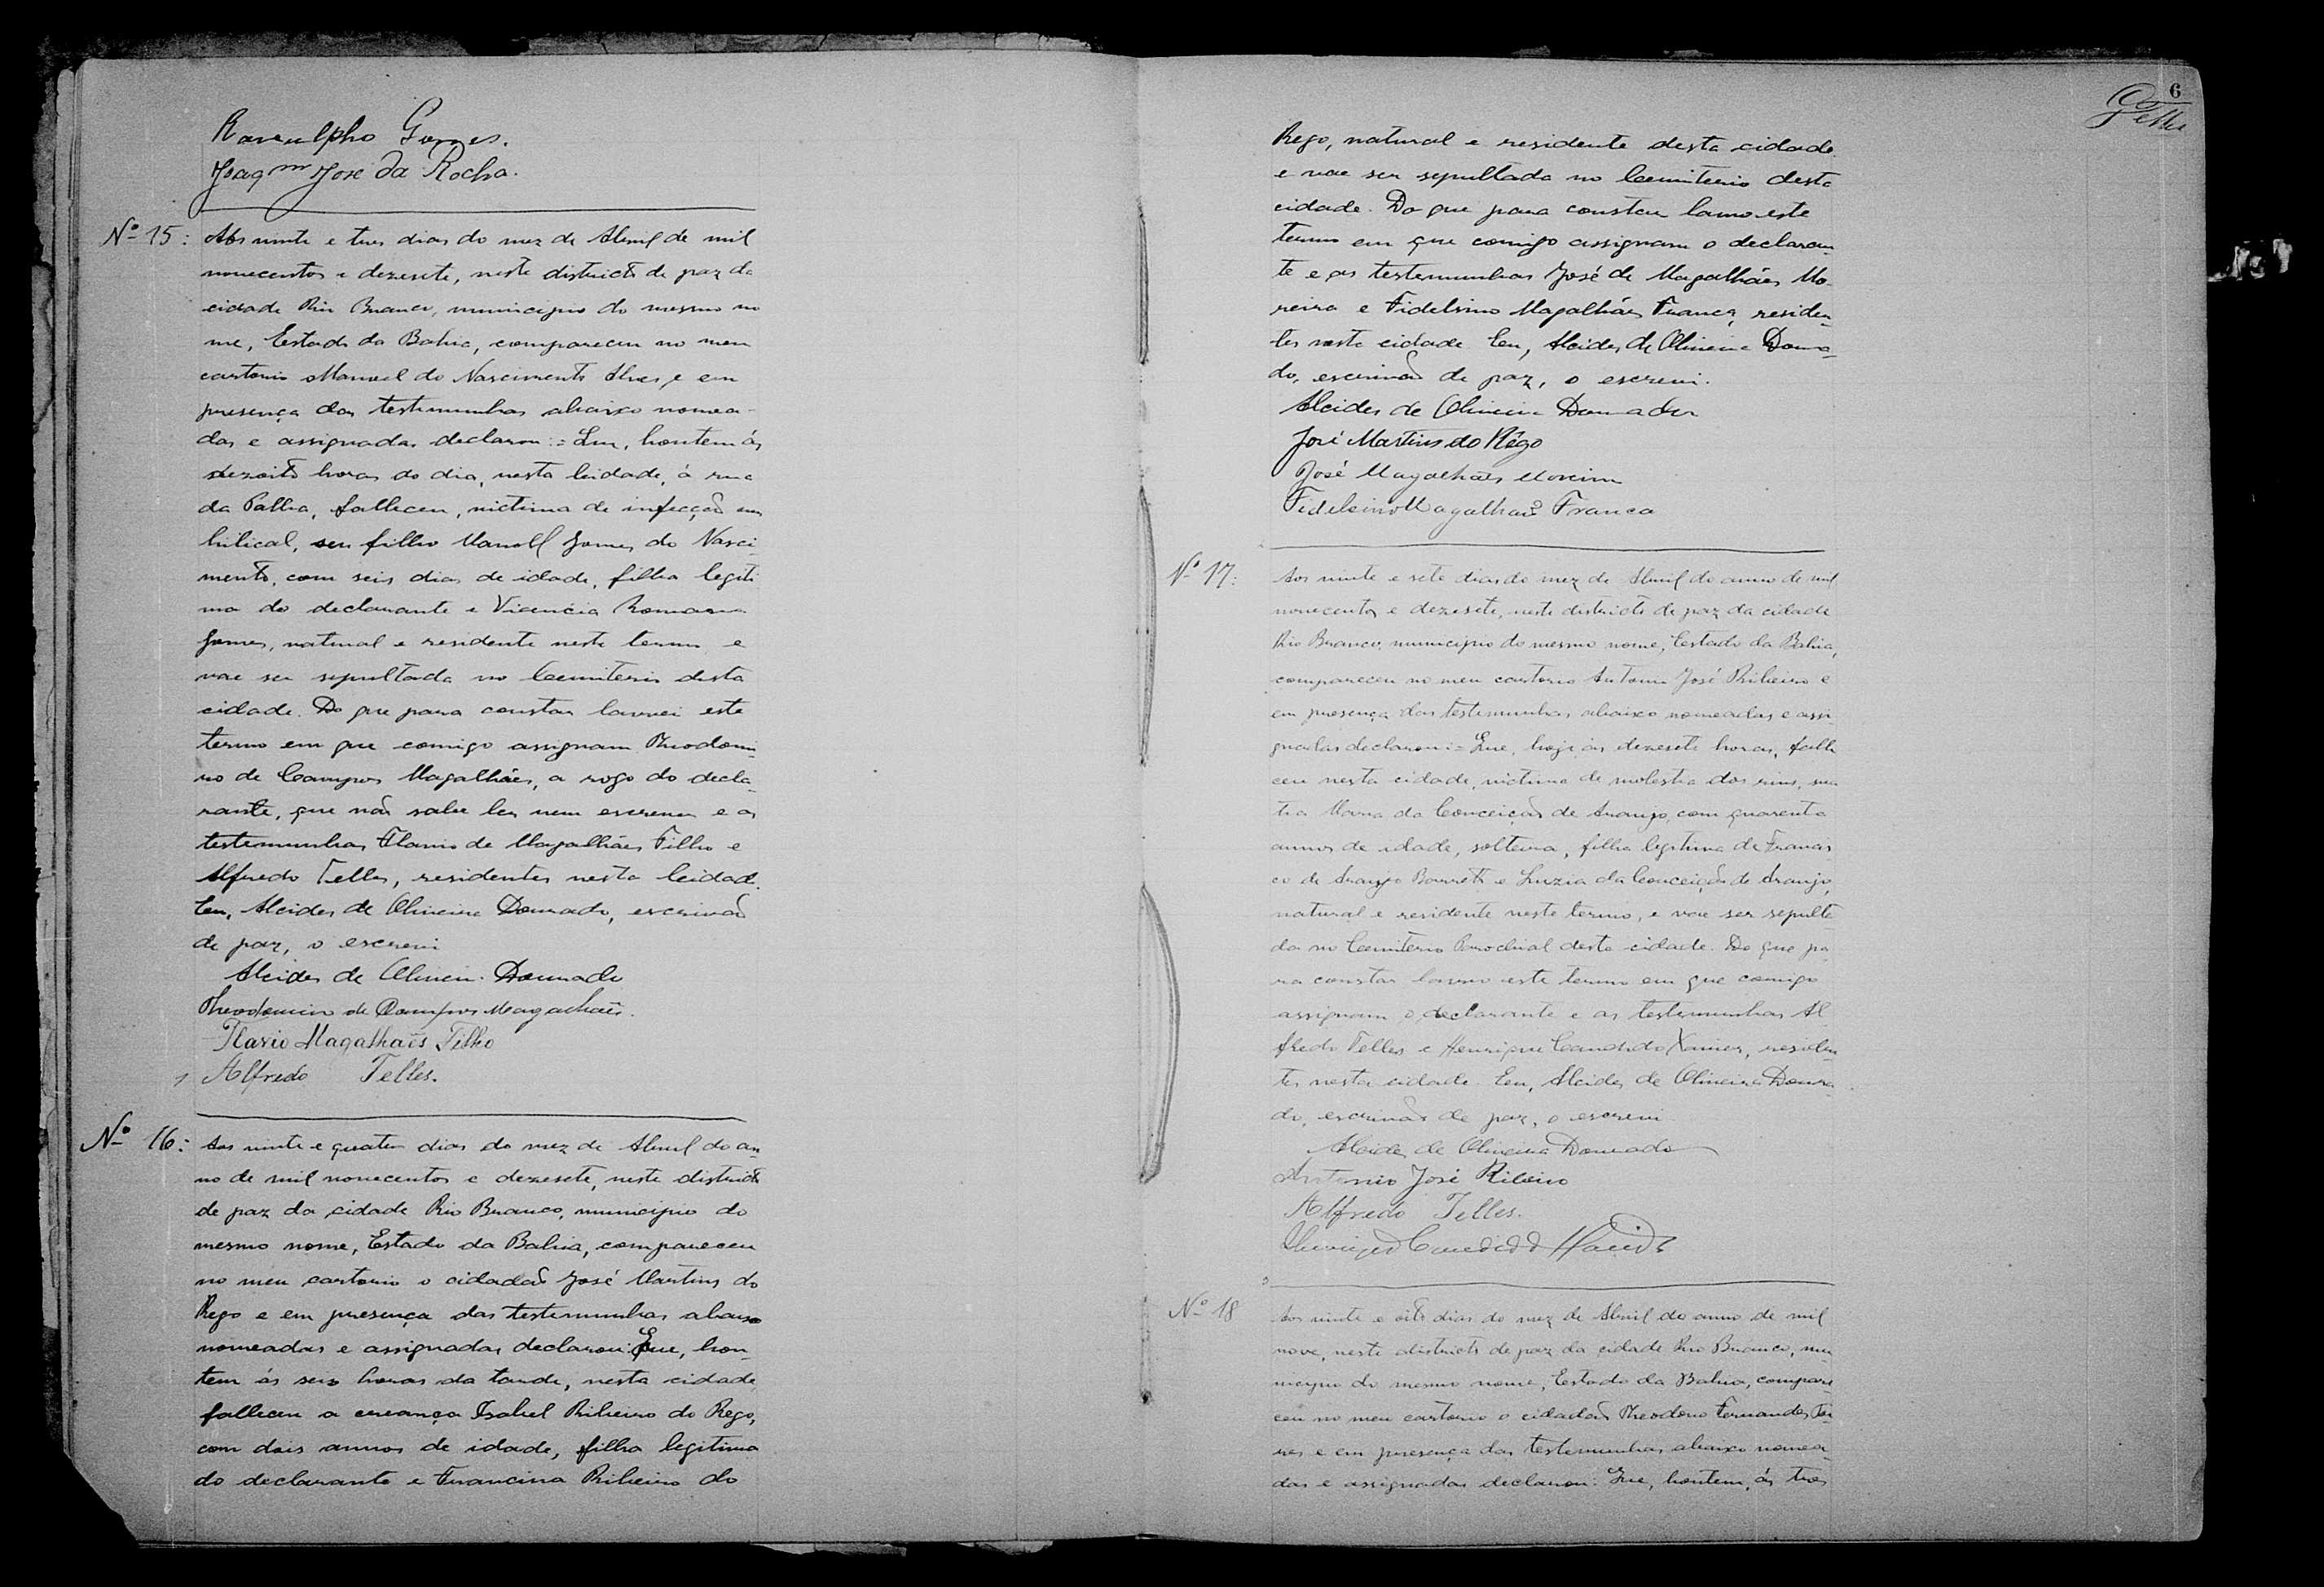 Ranulpho Gomes.
Joaqm José da Rocha.
Nº 15:
Aos vinte e tres dias do mez de Abril de mil
novecentos e dezesete, neste districto de paz da
cidade Rio Branco, municipio do mesmo no
me, Estado da Bahia, compareceu no meu
cartorio Manoel do Nascimento Alves, e em
presença das testemunhas abaixo nomea-
das e assignadas declarou:= Que, hontem ás
dezoito horas do dia, nesta Cidade, á rua
da Palha, falleceu, victima de infecção um
bilical, seu filho Manoel Gomes do Nasci-
mento, com seis dias de idade, filho legiti
mo do declarante e Vicencia Romana
Gomes, natural e residente neste termo e
vae ser sepultada no Cemiterio desta
cidade. Do que para constar lavrei este
termo em que comigo assignam Theodomi
ro de Campos Magalhães, a rogo do decla-
rante, que não sabe ler nem escrever e as
testemunhas Flavio de Magalhães Filho e
Alfredo Telles, residentes nesta Cidade.
Eu, Alcides de Oliveira Dourado, escrivão
de paz, o escrevi
Alcides de Oliveira Dourado
Theodomiro de Campos Magalhães.
Flavio Magalhães Filho
Alfredo Telles.
Nº 16:
Aos vinte e quatro dias do mez de Abril do an-
no de mil novecentos e dezesete, neste districto
de paz da cidade Rio Branco, municipio do
mesmo nome, Estado da Bahia, compareceu
no meu cartorio o cidadão José Martins do
Rego e em presença das testemunhas abaixo
nomeadas e assignadas declarou: Que, hon-
tem ás seis horas da tarde, nesta cidade
falleceu a creança Isabel Ribeiro do Rego,
com dois annos de idade, filha legitima
do declarante e Francina Ribeiro do
6
Telles
Rego, natural e residente desta cidade
e vae ser sepultada no Cemiterio desta
cidade. Do que para constar lavro este
termo em que comigo assignam o declaran-
te e as testemunhas José de Magalhães Mo-
reira e Fidelsino Magalhães Franca, residen-
tes nesta cidade. Eu, Alcides de Oliveira Doura-
do, escrivão de paz, o escrevi.
Alcides de Oliveira Dourado
José Martins do Rêgo
José Magalhães Moreira
Fidelsino Magalhães Franca
Nº 17:
Aos vinte e sete dias do mez de Abril do anno de mil
novecentos e dezesete, neste districto de paz da cidade
Rio Branco, municipio do mesmo nome, Estado da Bahia,
compareceu no meu cartorio Antonio José Ribeiro e
em presença das testemunhas abaixo nomeadas e assi-
gnadas declarou:= Que, hoje ás dezesete horas, falle
ceu nesta cidade, victima de molestia dos rins, sua
tia Maria da Conceição de Araujo, com quarenta
annos de idade, solteira, filha legitima de Francis
co de Araujo Barreto e Luzia da Conceição de Araujo,
natural e residente neste termo, e vae ser sepulta
da no Cemiterio Parochial desta cidade. Do que pa-
ra constar lavro este termo em que comigo
assignam o declarante e as testemunhas Al
fredo Telles e Henrique Candido Xavier, residen-
tes nesta cidade. Eu, Alcides de Oliveira Doura-
do, escrivão de paz, o escrevi
Alcides de Oliveira Dourado
Antonio José Ribeiro
Alfredo Telles.
Candido
Nº 18
Aos vinte e oito dias do mez de Abril do anno de mil
nove, neste districto de paz da cidade Rio Branco, mu-
nicipio do mesmo nome, Estado da Bahia, compare-
ceu no meu cartorio o cidadão Theodoro Fernandes
e em presença das testemunhas abaixo nomea-
das e assignadas declarou: Que, hontem, ás tres